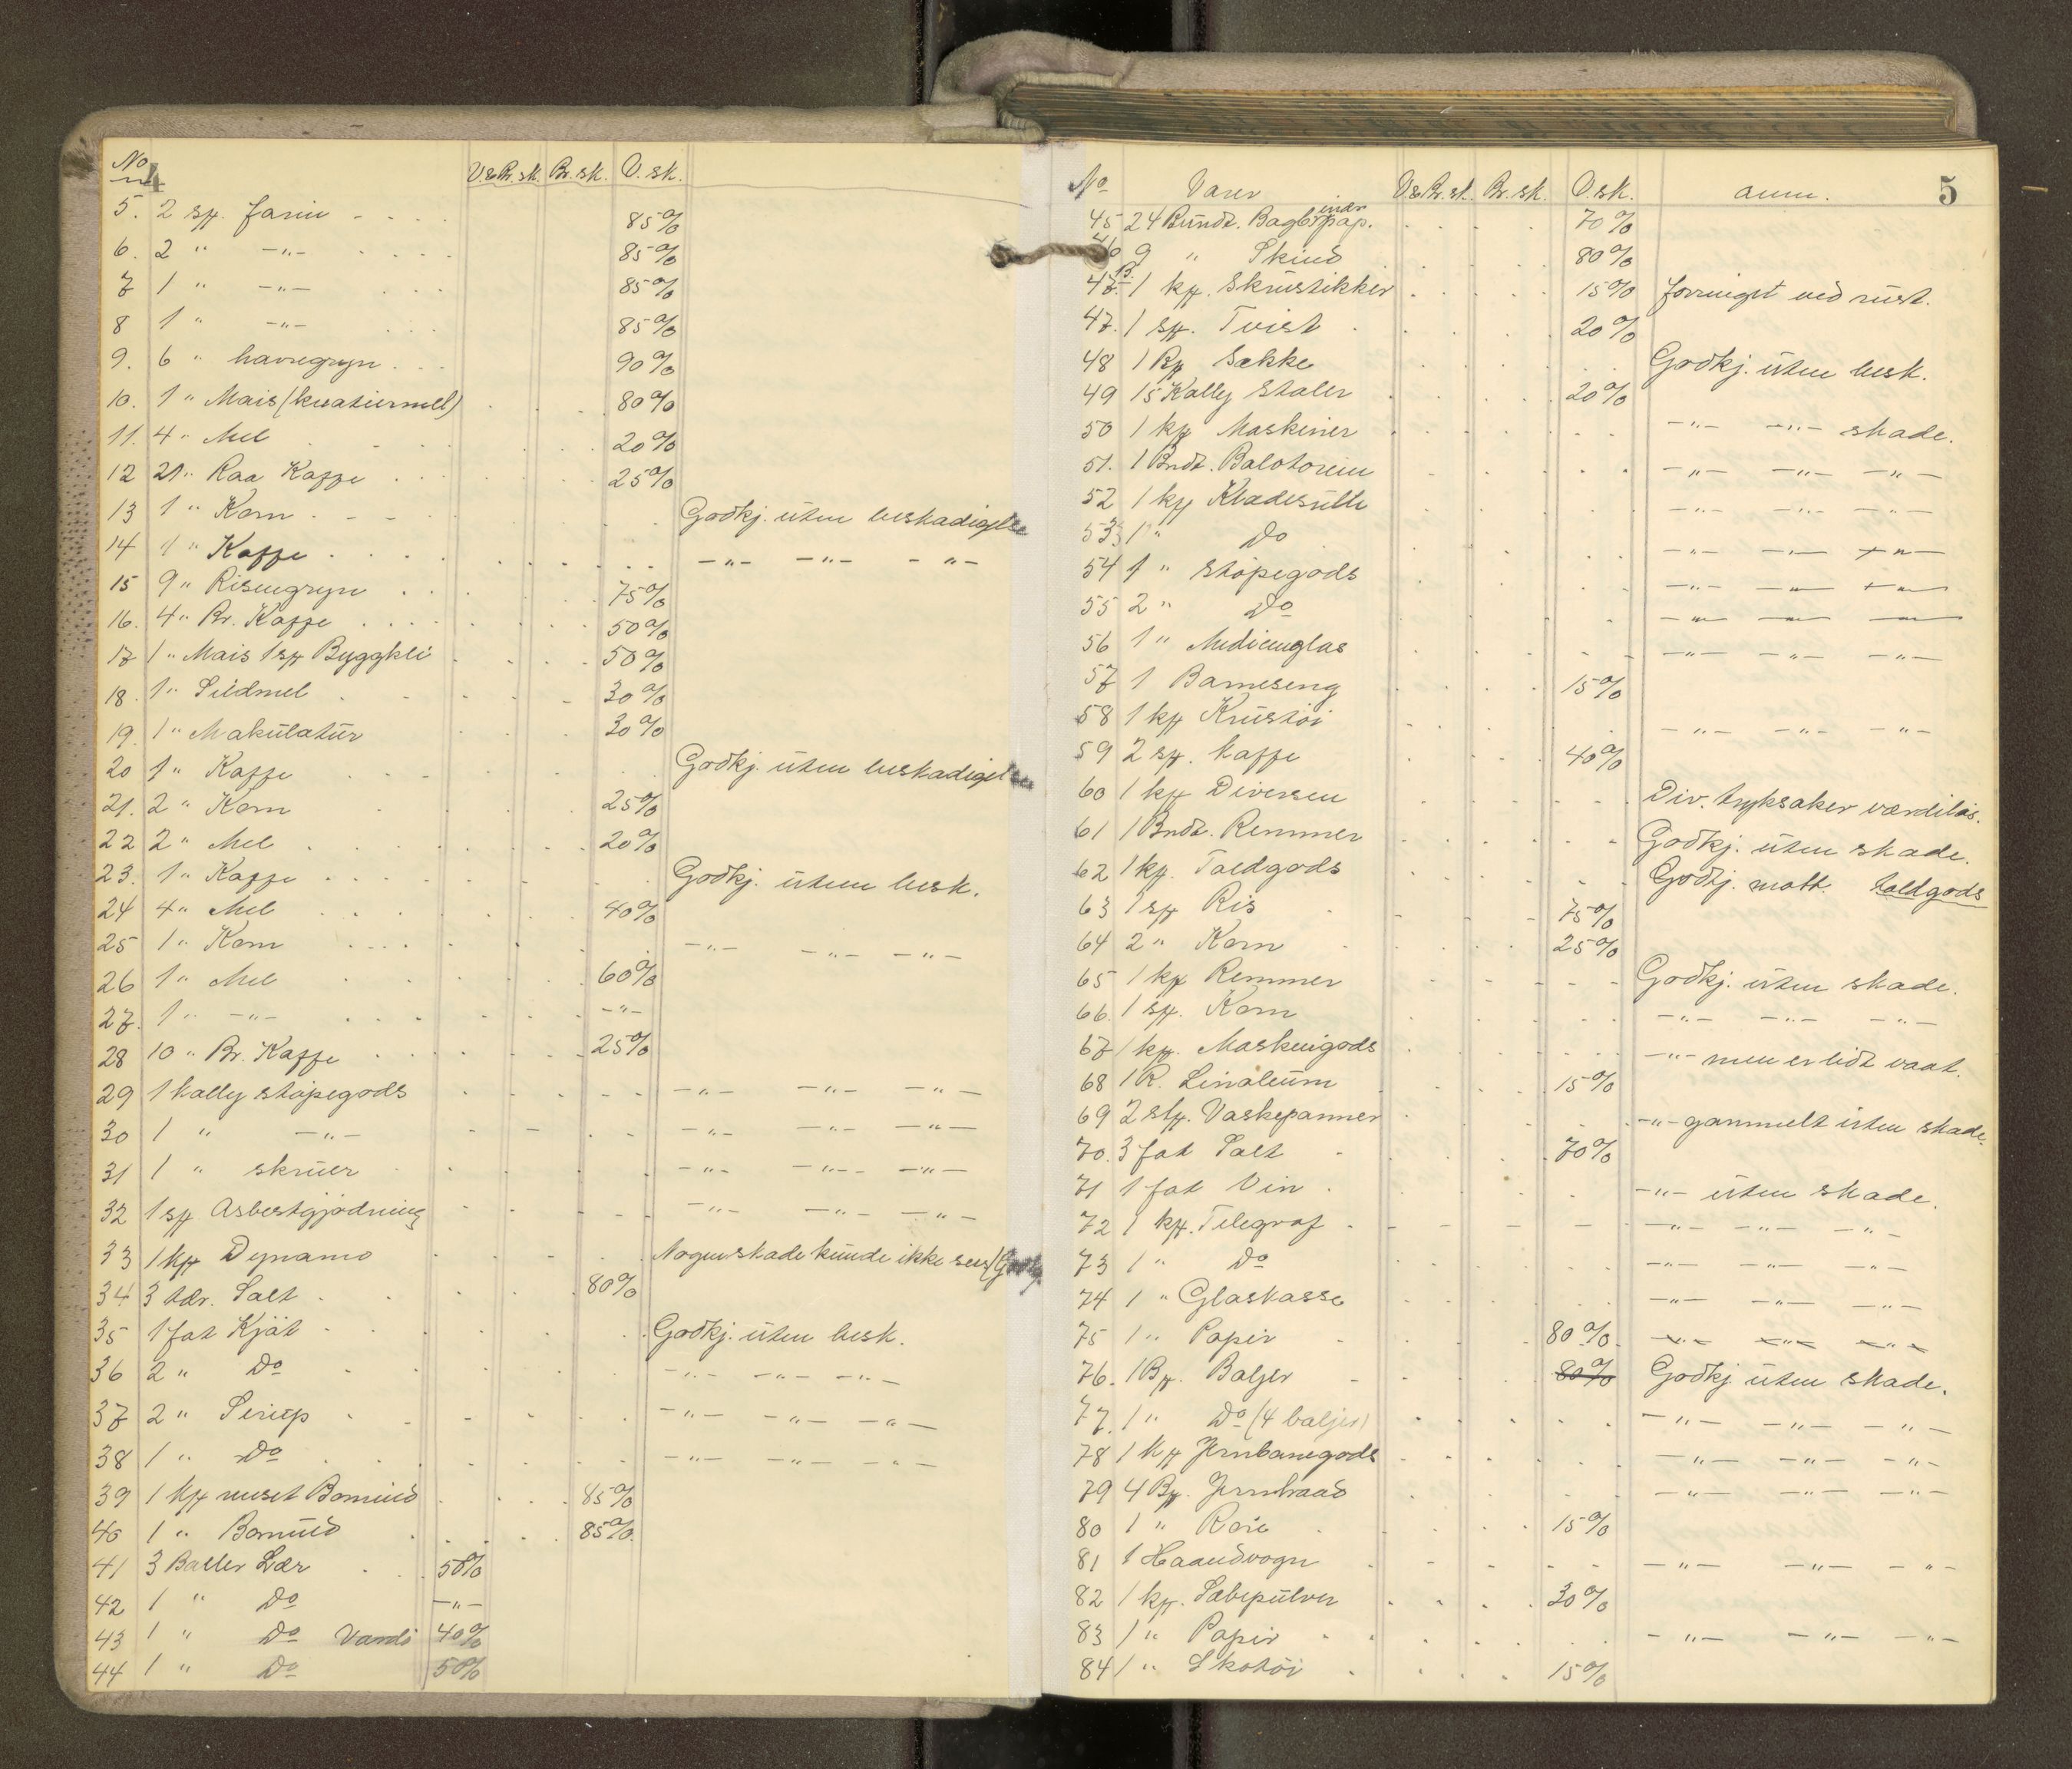 No 4 V.&Br.sk. Br.sk. V.sk.
5. 2 sk. farin - - - - 85%
6. 2 " -"- 85%
7 1 " -"- 85%
8 1 " -"- 85%
9. 6 " havregryn 90%
10. 1 " Mais 80%
11. 4 " Mel 20%
12 21 " Raa Kaffe 25%
13 1 " Korn Godkj. uten beskadigelse
14 1 " Kaffe -"- -"- -"-
15 9 " Risengryn 75%
16. 4 " Br. Kaffe 50%
17 1 " Mais 1 sk Byggkli 50%
18. 1 " Sildmel 30%
19. 1 " Makulatur 30%
20 1 " Kaffe Godkj. uten beskadigelse
21. 2 " Korn 25%
22 2 " Mel 20%
23. 1 " Kaffe Godkj. uten besk.
24 4 " Mel 40%
25 1 " Korn -"- -"- -"-
26 1 " Mel 60%
27. 1 " -"- -"-
28 10 " Br. Kaffe 25%
29 1 kolly støpegods -"- -"- -"-
30 1 " -"- -"- -"- -"-
31 1 " skruer -"- -"- -"-
32 1 sk Asbestgjødning -"- -"- -"-
33 1 kss Dynamo Nogen skade kunde ikke sees
34 3 tdr. Salt 80%
35 1 fat Kjøt Godkj. uten besk.
36 2 " Do -"- -"- -"-
37 2 " Sirup -"- -"- -"-
38 1 " Do -"- -"- -"-
39 1 kss uuset Bomuld 85%
40 1 " Bomuld 85%
41 3 Baller Lær 50%
42 1 " Do -"-
43 1 " Do Vardø 40%
44 1 " Do 50%
No Varer V.&Br.sk. Br.sk. V.sk. anm. 5
45 24 Bundt. Bagbinder pap. 70%
46 9 " Skind 80%
47B. 1 kss. Skrustikker 15% forringet ved rust.
47. 1 sk. Tvist 20%
48 1 Bt Sække Godkj. uten besk.
49 15 Kolly Stoler 20%
50 1 kss Maskiner -"- -"- skade.
51. 1 Bndt. Balotoreim -"- -"- -"-
52 1 kss Kladesrulle -"- -"- -"-
53 1 " Do -"- -"- -"-
54 1 " støpegods -"- -"- -"-
55 2 " Do -"- -"- -"-
56 1 " Medicinglas -"- -"- -"-
57 1 Barneseng 15%
58 1 kss Krustøi -"- -"- -"-
59 2 sk. kaffe 40%
60 1 kss Diversen Div. tryksaker værdiløs.
61 1 Bndt. Remmer Godkj. uten skade.
62 1 kss. Toldgods Godkj. mott. toldgods
63 1 sk Ris 75%
64 2 " Korn 25%
65 1 kss Remmer Godkj. uten skade.
66. 1 sk. Korn -"- -"- -"-
67 1 kss. Maskingods -"- men er lidt vaat.
68 1 R. Linoleum 15%
69 2 stk. Vaskepanner -"- gammelt uten skade.
70. 3 fat Salt 70%
71 1 fat Vin -"- uten skade.
72 1 kss. Telegraf -"- -"- -"-
73 1 " Do -"- -"- -"-
74 1 " Glaskasse -"- -"- -"-
75 1 " Papir 80% -"- -"- -"-
76. 1 Bt. Baljer 80% Godkj uten skade.
77. 1 " Do (4 baljer) -"- -"- -"-
78 1 kss Jernbanegods -"- -"- -"-
79 4 Bt. Jerntraad -"- -"- -"-
80 1 " Rør 15%
81 1 Haandvogn -"- -"- -"-
82 1 kss. Sæbepulver 30%
83 1 " Papir -"- -"- -"-
84 1 " Skotøi 15%